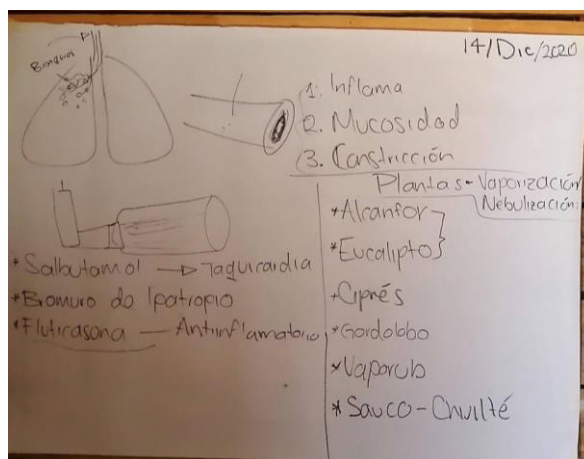 14/Dic/2020
Bronquios
1. Inflama
2. Mucosidad
3. Constricción
Plantas - Vaporización
Nebulización:
*Alcanfor
*Eucalipto
*Ciprés
*Gordolobo
*Vaporub
*Sauco - Chuilté
*Salbutamol → Taquicardia
*Bromuro do Ipatropio
*Fluticasona — Antiinflamatorio